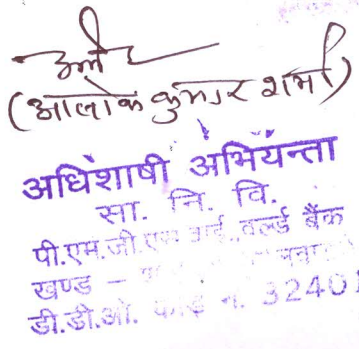 (आलोक कुमार शर्मा)
अधिशाषी अभियन्ता
सा. नि. वि.
पी.एम.जी.एस वाई., वर्ल्ड बैंक
खण्ड –
डी.डी.ओ. कोड न. 32401